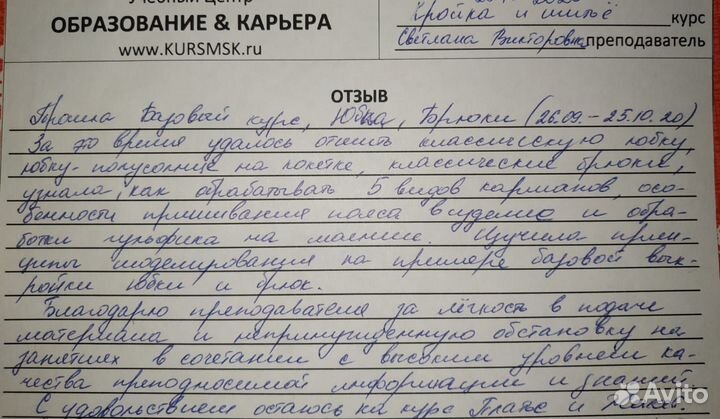 Учебный центр
ОБРАЗОВАНИЕ & КАРЬЕРА
www.KURSMSK.ru
Кройка и шитьё курс
Светлана Викторовна преподаватель
ОТЗЫВ
Прошла Базовый курс, Юбка, Брюки (26.09. – 25.10.20)
За это время удалось отшить классическую юбку,
юбку-полусолнце на кокетке, классические брюки,
узнала, как обрабатывать 5 видов карманов, осо-
бенности пришивания пояса в изделие и обра-
ботки гульфика на молнию. Изучила прин-
ципы моделирования на примере базовой вык-
ройки юбки и брюк.
Благодарю преподавателя за лёгкость в подаче
материала и непринужденную обстановку на
занятиях в сочетании с высоким уровнем ка-
чества преподносимой информации и знаний
С удовольствием остаюсь на курс Платье и
Avito